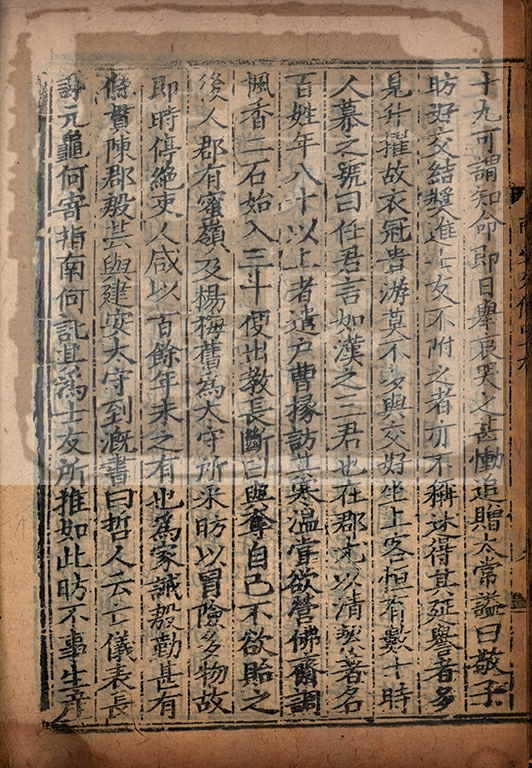 十九可謂知命即日舉哀哭之甚慟追贈太常謚曰敬子
昉好交結奬進士友不附之者亦不稱述得其延譽者多
見升擢故衣冠貴游莫不多與交好坐上客恒有數十時
人慕之號曰任君言如漢之三君也在郡尤以清潔著名
百姓年八十以上者遣户曹掾訪其寒温嘗欲營佛齋調
楓香二石始入三斗便出教長斷曰與奪自己不欲貽之
後人郡有蜜嶺及楊梅舊爲大守所采昉以冒險多物故
即時停絶吏人咸以百餘年未之有也爲家誡殷勤甚有
條貫陳郡殷芸與建安大守到溉書曰哲人云亡儀表長
謝元龜何寄指南何託其爲士友所推如此昉不事生産